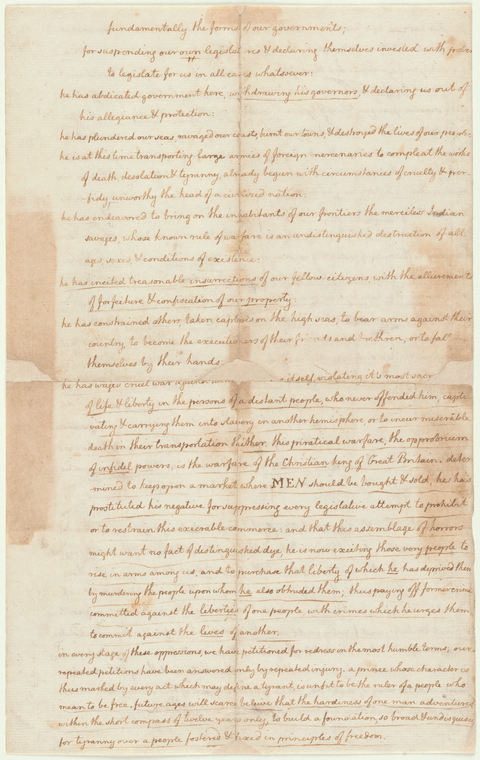 fundamentally the forms of our governments;
for suspending our own legislatures & declaring themselves invested with power
to legislate for us in all cases whatsoever:
he has abdicated government here, withdrawing his governors, & declaring us out of
his allegiance & protection:
he has plundered our seas, ravaged our coasts, burnt our towns, & destroyed the lives of our people:
he is at this time transporting large armies of foreign mercenaries to compleat the works
of death, desolation & tyranny, already begun with circumstances of cruelty & per-
fidy unworthy the head of a civilized nation:
he has endeavored to bring on the inhabitants of our frontiers the merciless Indian
savages, whose known rule of warfare is an undistinguished destruction of all
ages, sexes, & conditions of existence:
he has incited treasonable insurrections of our fellow-citizens, with the allurements
of forfeiture & confiscation of our property:
he has constrained others, taken captives on the high seas, to bear arms against their
country, to become the executioners of their friends and brethren, or to fall
themselves by their hands:
he has waged cruel war against itself, violating it's most
of life & liberty in the persons of a distant people, who never offended him, capti-
vating & carrying them into slavery in another hemisphere or to incur miserable
death in their transportation thither. this piratical warfare, the opprobrium
of infidel powers, is the warfare of the Christian king of Great Britain. deter-
mined to keep open a market where MEN should be bought & sold, he has
prostituted his negative for suppressing every legislative attempt to prohibit
or to restrain this execrable commerce: and that this assemblage of horrors
might want no fact of distinguished dye, he is now exciting those very people to
rise in arms among us, and to purchase that liberty of which he has deprived them
by murdering the people upon whom he also obtruded them; thus paying off former crimes
committed against the liberties of one people with crimes which he urges them
to commit against the lives of another.
in every stage of these oppressions, we have petitioned for redress in the most humble terms; our
repeated petitions have been answered only by repeated injury. a prince whose character is
thus marked by every act which may define a tyrant, is unfit to be the ruler of a people who
mean to be free. future ages will scarce believe that the hardiness of one man adventured
within the short compass of twelve years only, to build a foundation, so broad & undisguised
for tyranny over a people fostered & fixed in principles of freedom.